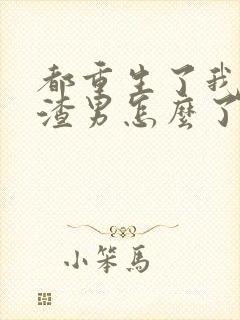 都重生了我
渣男怎麼了
小笨馬